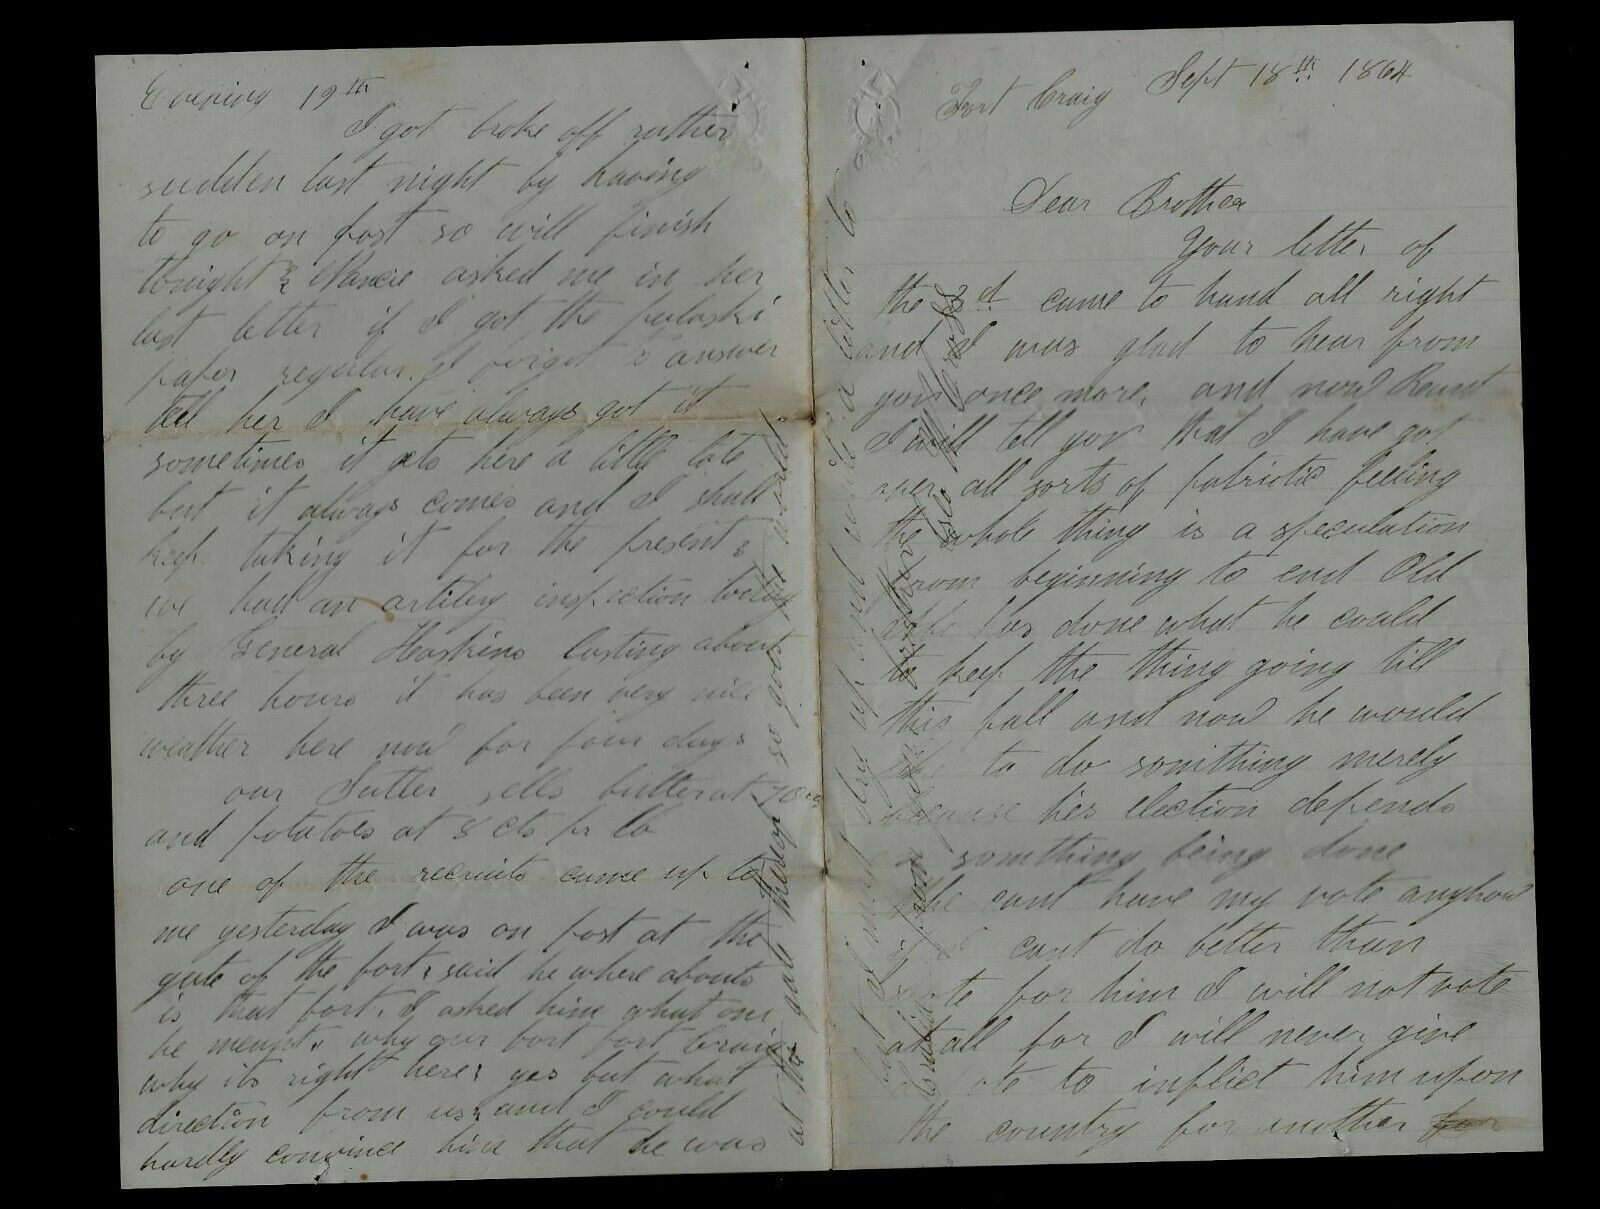 Fort Craig Sept 18th 1864
Dear Brother
Your letter of
the 3d came to hand all right
and I was glad to hear from
you once more, and now
I will tell you that I have got
over all sorts of patriotic feeling
the whole thing is a speculation
from beginning to end Old
Abe has done what he could
to keep the thing going till
this fall and now he would
like to do somithing merely
because his election depends
on somithing being done
he cant have my vote anyhow
if I cant do better than
vote for him I will not vote
at all for I will never give
a vote to inflict him upon
the country for another
Evening 19th
I got broke off rather
sudden last night by having
to go on post so will finish
tonight & Nancie asked me in her
last letter if I got the pulaski
paper regular. I forgot to answer
tell her I have always got it
sometimes it gets here a little late
but it always comes and I shall
keep taking it for the present &
we had an artilery inspection today
by General Haskins lasting about
three hours it has been very nice
weather here now for four days
our Sutler sells butter at 70 cts
and potatoes at 8 cts pr lb
one of the recruits came up to
me yesterday I was on post at the
gate of the fort, said he where abouts
is that fort, I asked him what one
he meant, why our fort fort Craig
why its right here, yes but what
direction from us, and I could
hardly convince him that he was
at the gate thereof so goes the world.
but I must dry up and write a letter to